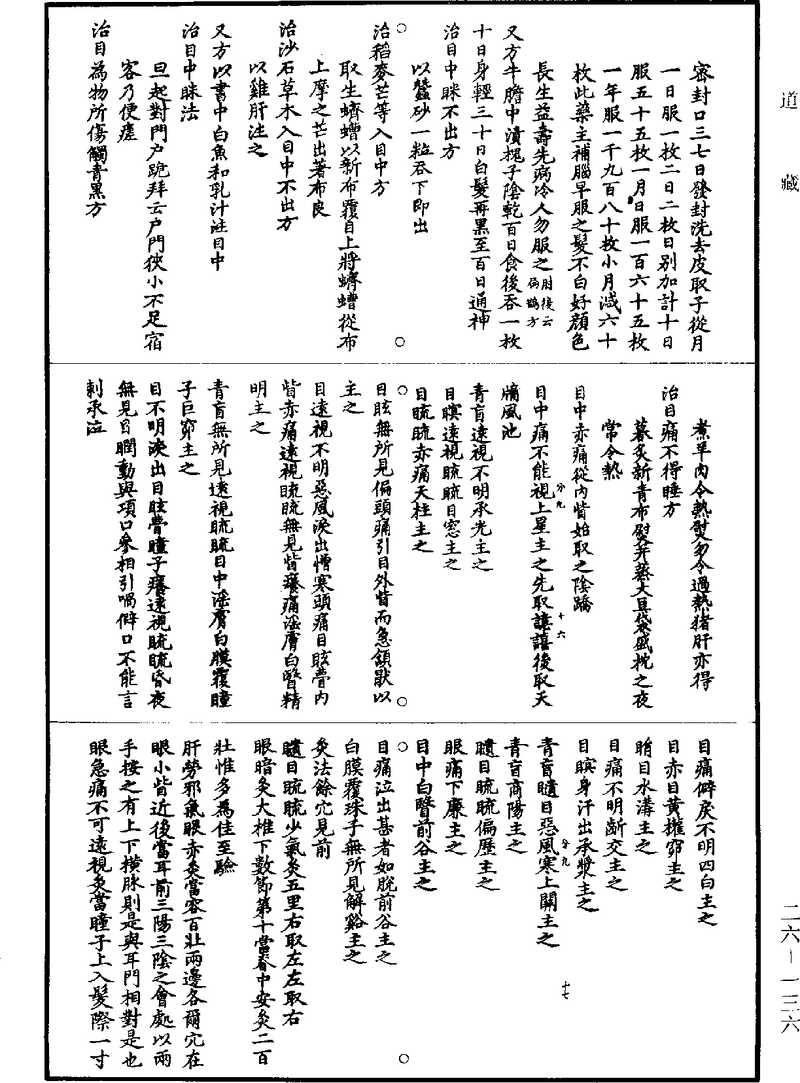 道藏
密封口三七日發封洗去皮取子從月
一日服一枚二日二枚日別加計十日
服五十五枚一月日服一百六十五枚
一年服一千九百八十枚小月減六十
枚此藥主補腦早服之髮不白好顏色
長生益壽先病冷人勿服之肘後云扁鵲方
又方牛膽中漬槐子陰乾百日食後吞一枚
十日身輕三十日白髮再黑至百日通神
治目中眯不出方
以蠶砂一粒吞下即出
治稻麥芒等入目中方
取生蠐螬以新布覆目上將蠐螬從布
上摩之芒出著布良
治沙石草木入目中不出方
以雞肝注之
又方以書中白魚和乳汁注目中
治目中眯法
旦起對門戶跪拜云戶門狹小不足宿
客乃便瘥
治目為物所傷觸青黑方
煮羊肉令熱熨勿令過熱猪肝亦得
治目痛不得睡方
暮炙新青布熨并蒸大豆袋盛枕之夜
常令熱
目中赤痛從內眥始取之陰蹻
目中痛不能視上星主之先取譩譆後取天
牖風池
青盲遠視不明承光主之
目瞑遠視䀮䀮目窓主之
目䀮䀮赤痛天柱主之
目眩無所見偏頭痛引目外眥而急頷厭以
主之
目遠視不明惡風淚出憎寒頭痛目眩瞢內
眥赤痛遠視䀮䀮無見眥癢痛淫膚白瞖精
明主之
青盲無所見遠視䀮䀮目中淫膚白膜覆瞳
子巨窌主之
目不明淚出目眩瞢瞳子癢遠視䀮䀮昏夜
無見目瞤動與項口參相引喎僻口不能言
刺承泣
目痛僻戾不明四白主之
目赤目黃權窌主之
睊目水溝主之
目痛不明齗交主之
目瞑身汗出承漿主之
青盲䁾目惡風寒上關主之
青盲商陽主之
䁾目䀮䀮偏歷主之
眼痛下廉主之
目中白瞖前谷主之
目痛泣出甚者如脫前谷主之
白膜覆珠子無所見解谿主之
灸法餘穴見前
䁾目䀮䀮少氣灸五里右取左左取右
眼暗灸大椎下數節第十當脊中安灸二百
壯惟多為佳至驗
肝勞邪氣眼赤灸當容百壯兩邊各爾穴在
眼小眥近後當耳前三陽三陰之會處以兩
手按之有上下橫脉則是與耳門相對是也
眼急痛不可遠視灸當瞳子上入髮際一寸
十六
十七
二六—一三六